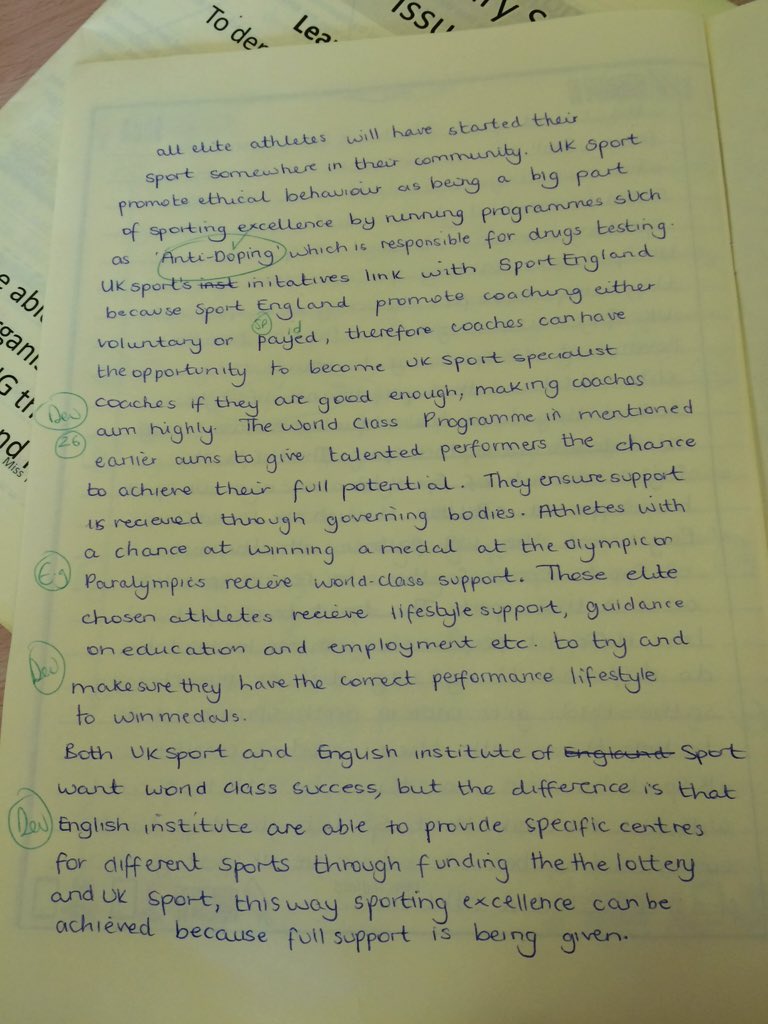 To der
Lea
ISSU
ry S
all elite athletes will have started their
sport somewhere in their community. UK Sport
promote ethical behaviour as being a big part
of sporting excellence by running programmes such
as 'Anti-Doping' which is responsible for drugs testing.
UK sport's inst initatives link with Sport England
because Sport England promote coaching either
SP
id
voluntary or payed, therefore coaches can have
the opportunity to become UK Sport specialist
Dev
coaches if they are good enough, making coaches
26
aim highly. The World Class Programme in mentioned
earlier aims to give talented performers the chance
to achieve their full potential. They ensure support
is recieved through governing bodies. Athletes with
a chance at winning a medal at the Olympic or
E.g
Paralympics recieve world-class support. These elite
chosen athletes recieve lifestyle support, guidance
on education and employment etc. to try and
Dev
make sure they have the correct performance lifestyle
to win medals.
Both UK Sport and English institute of England Sport
want world class success, but the difference is that
Dev
English institute are able to provide specific centres
for different sports through funding the the lottery
and UK Sport, this way sporting excellence can be
achieved because full support is being given.
e able
rgani
G th
nd
Miss